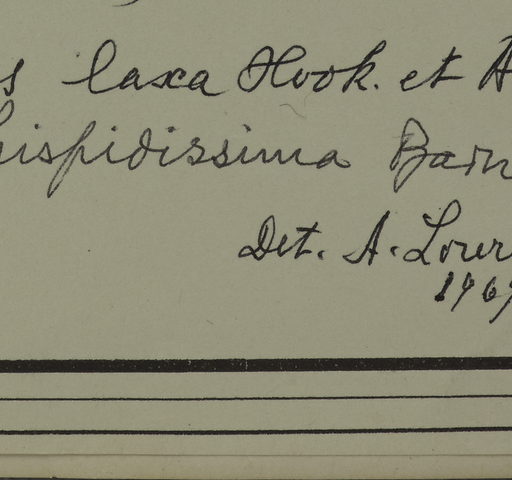 s laxa Hook. et A
hispidissima Barn
Det. A. Lour
1969